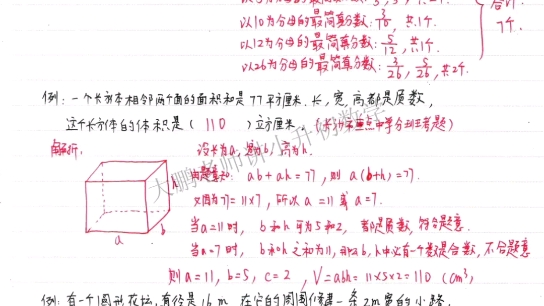 以10为分母的最简真分数：3/10，共1个.
以12为分母的最简真分数：5/12，共1个.
以26为分母的最简真分数：3/26，5/26，共2个.
合计：
7个.
例：一个长方体相邻两个面的面积和是77平方厘米.长，宽，高都是质数，
这个长方体的体积是（ 110 ）立方厘米.（长沙某重点中学分班考题）
解析：
设长为a，宽为b，高为h.
由题意知：ab+ah=77，则 a(b+h)=77.
又因为77=11×7，所以 a=11 或 a=7.
当a=11时， b和h 可为5和2， 都是质数，符合题意.
当a=7时， b和h之和为11，那么b，h中必有一个数是合数，不合题意
则 a=11，b=5，c=2 ，V=abh=11×5×2=110（cm³）
h
a
b
大鹏老师讲小升初数学
例：有一个圆形花坛，直径是16m，在它的周围修建一条2m宽的小路.